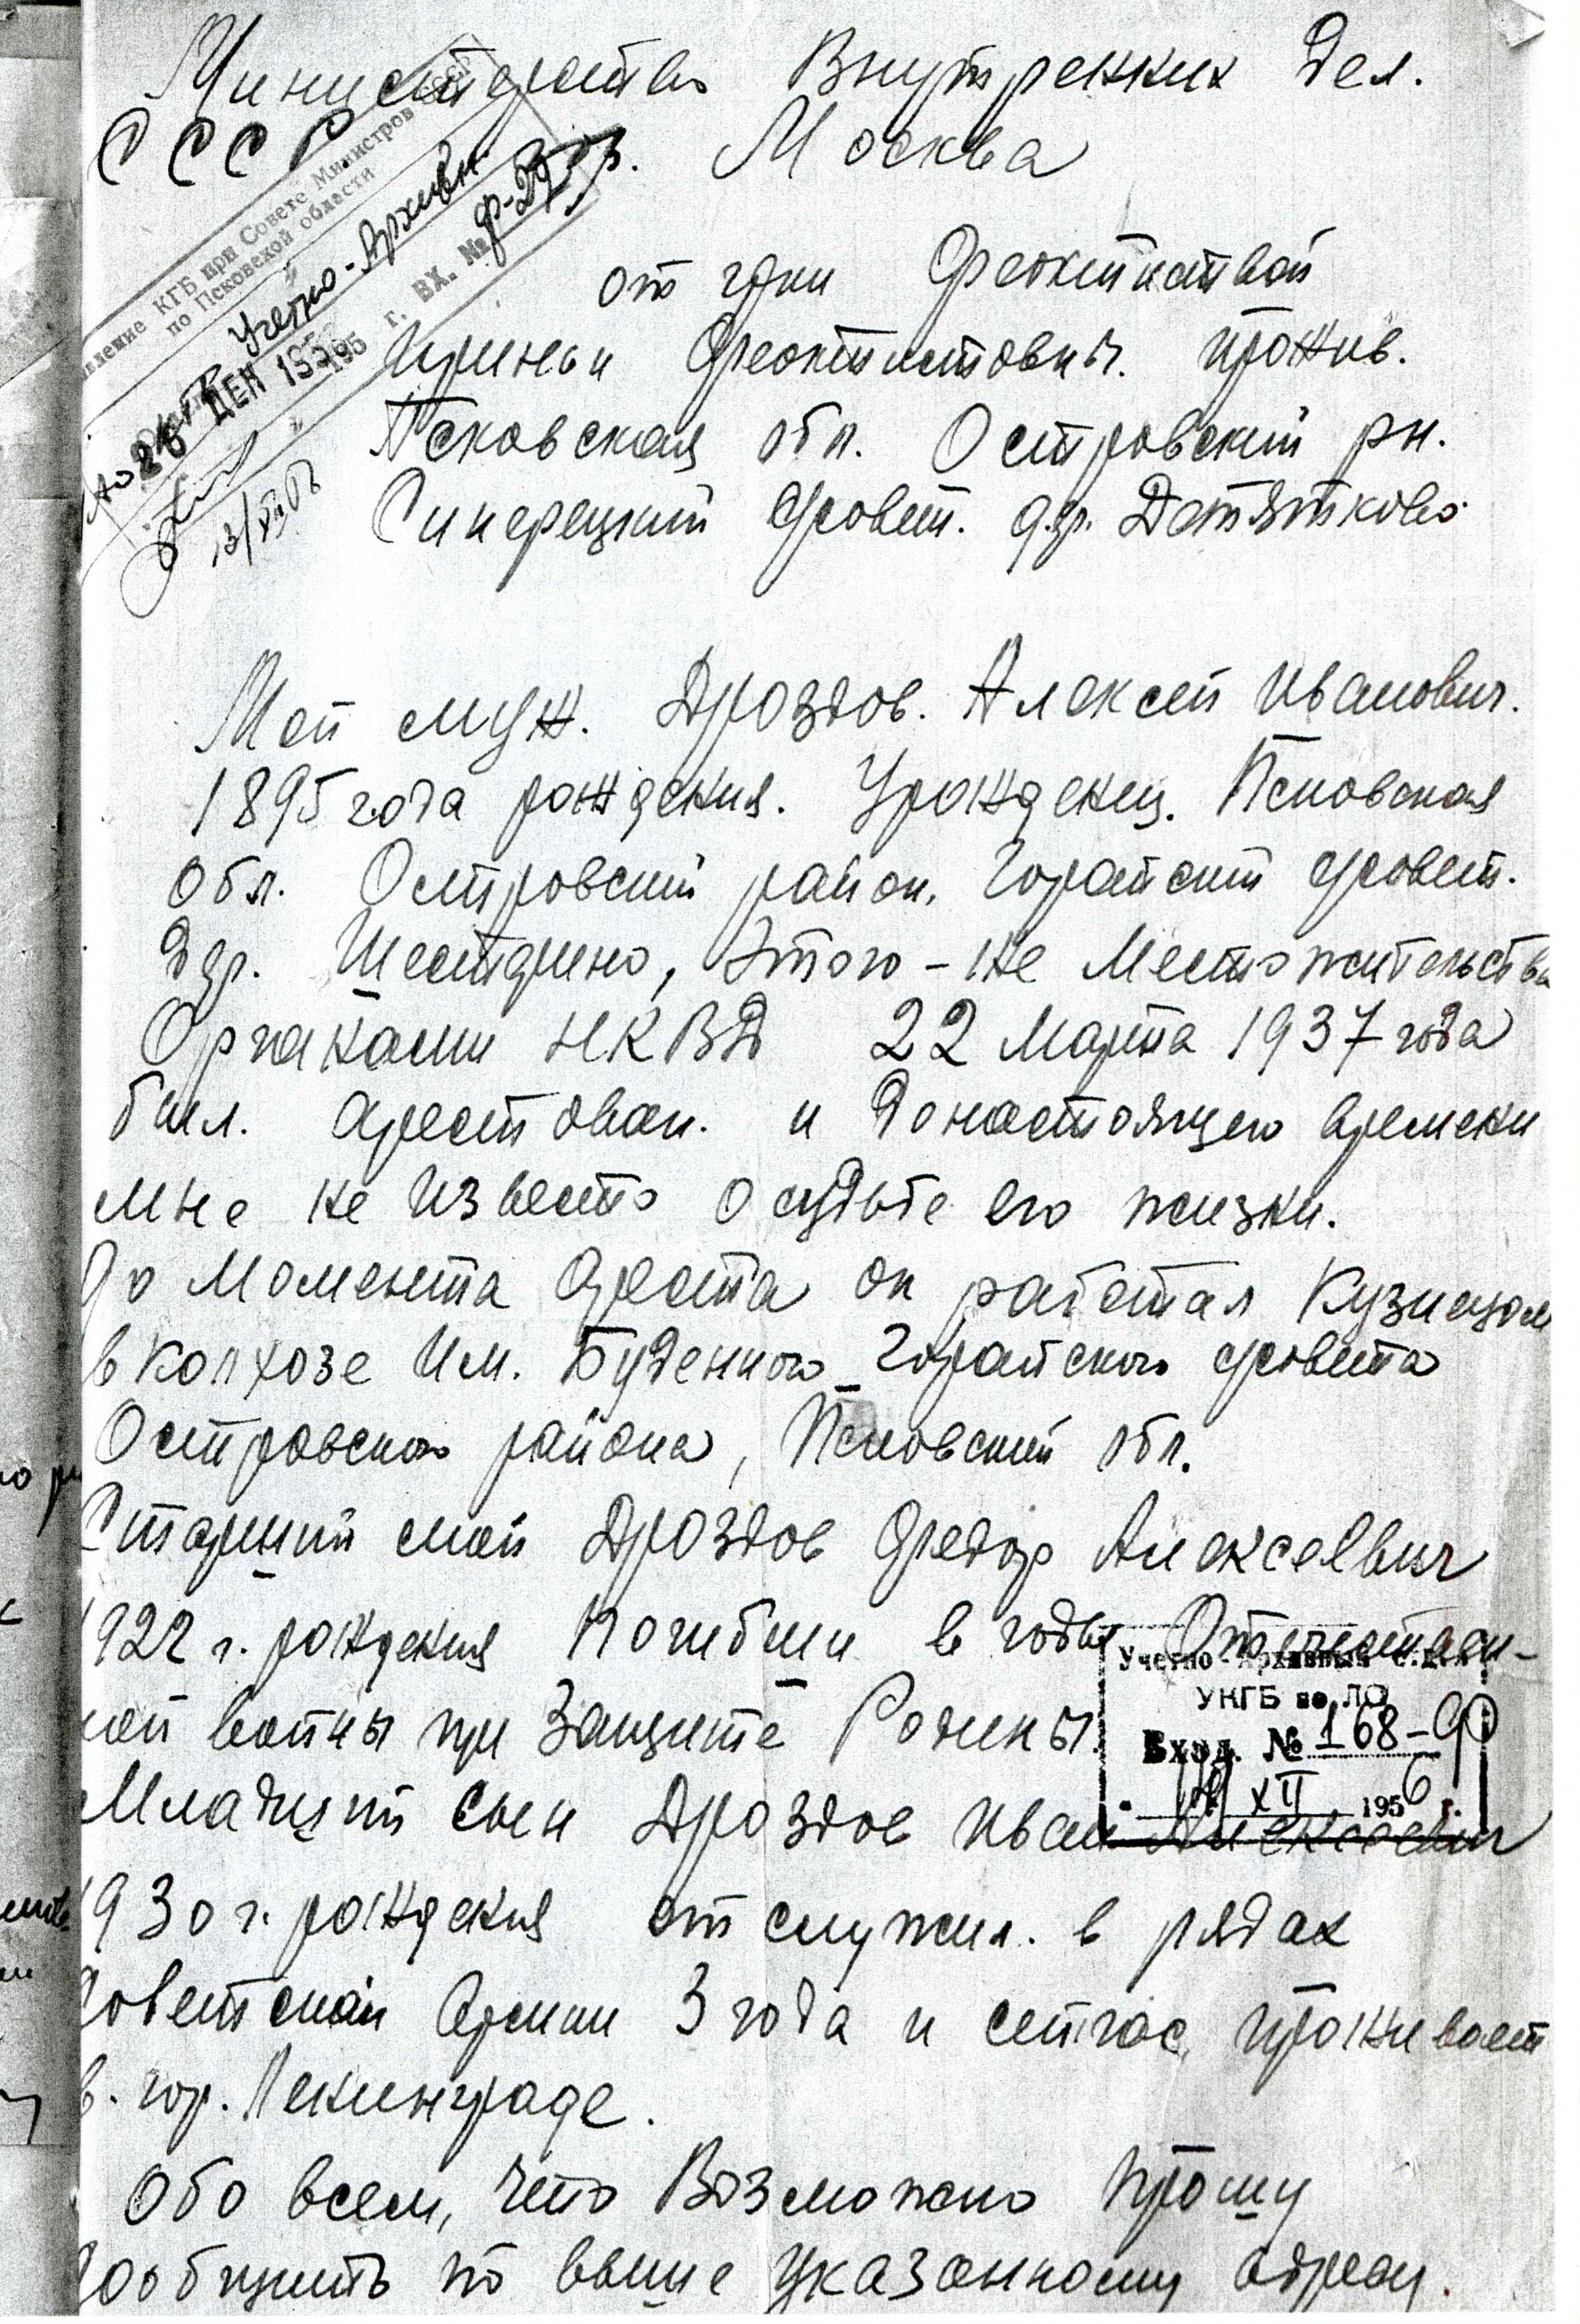 Министерство Внутренних Дел.
СССР гор. Москва
Управление КГБ при Совете Министров СССР
по Псковской области
Учетно-Архивн.
26 ДЕК 1956
195 г. ВХ. № Ф-29
13/XII
от гр-ки Феоктистовой
Ириньи Феоктистовны. прожив.
Псковская обл. Островский рн.
Синерецкий с/совет. д.р. Дотятково
Мой муж. Дроздов. Алексей Иванович.
1895 года рождения. Урожденец. Псковская
Обл. Островский район, Горайский с/совет.
Д др. Шестрино, Этого-же Местожительства
Органами НКВД 22 Марта 1937 года
был. арестован. и донастоящего времени
мне не Извесно о судьбе его жизни.
До Момента ареста он работал Кузнецом
в Колхозе Им. Буденного Горайского с/совета
Островского района, Псковский обл.
Старший мой Дроздов Федор Алексеевич
1922 г. рождения Погибши в годы Отечествен-
ной войны при Защите Родины.
Учетно-Архивный отдел
УКГБ по ЛО
Вход. № 168-
XII 1956 г.
Младший сын Дроздов Иван Алексеевич
1930 г. рождения отслужил. в рядах
Советской Армии 3 года и сейчас, проживает
в. гор. Ленинграде.
Обо всем, что Возможно прошу
сообщить по выше указанному адресу.